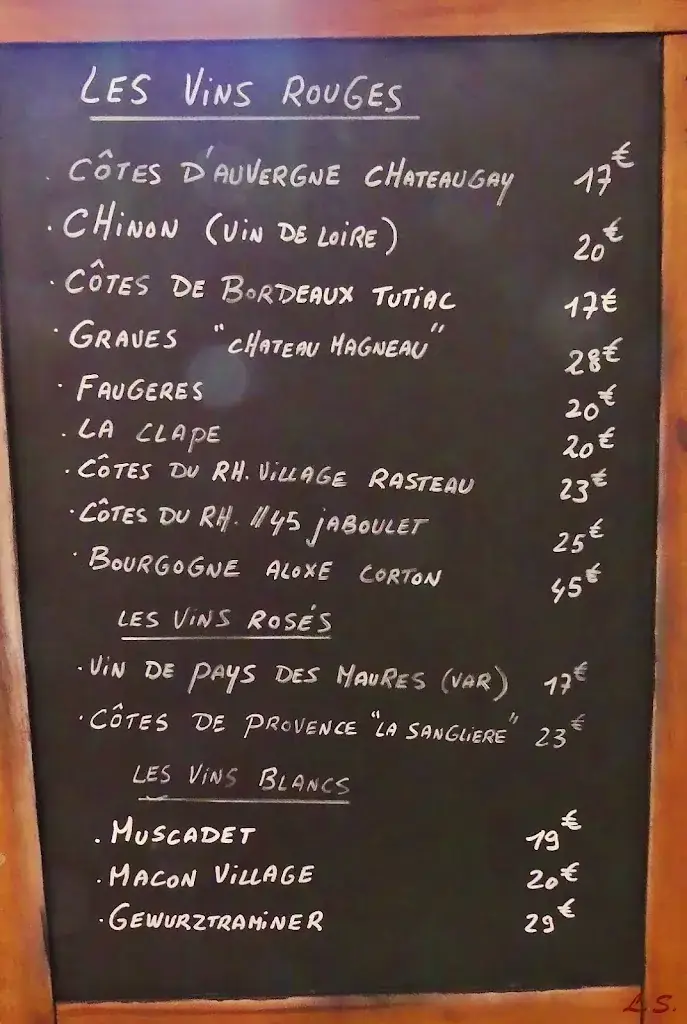 LES VINS ROUGES
. CÔTES D'AUVERGNE CHATEAUGAY 17€
. CHINON (VIN DE LOIRE) 20€
. CÔTES DE BORDEAUX TUTIAC 17€
. GRAVES "CHATEAU MAGNEAU" 28€
. FAUGERES 20€
. LA CLAPE 20€
. CÔTES DU RH. VILLAGE RASTEAU 23€
. CÔTES DU RH. //45 JABOULET 25€
. BOURGOGNE ALOXE CORTON 45€
LES VINS ROSÉS
. VIN DE PAYS DES MAURES (VAR) 17€
. CÔTES DE PROVENCE "LA SANGLIERE" 23€
LES VINS BLANCS
. MUSCADET 19€
. MACON VILLAGE 20€
. GEWURZTRAMINER 29€
L.S.